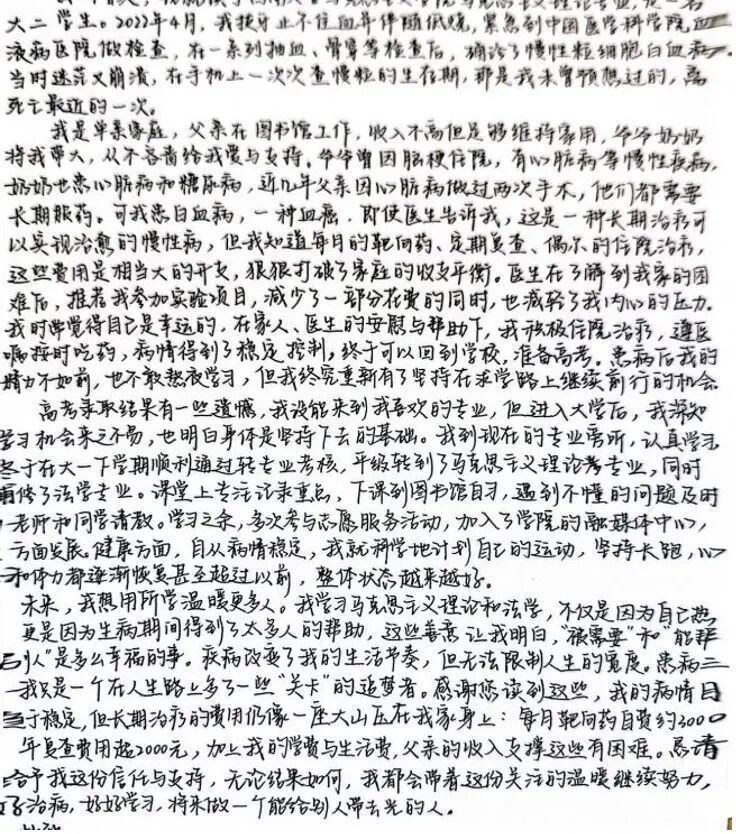 大二学生。2022年4月，我拔牙止不住血并伴随低烧，紧急到中国医学科学院血
液病医院做检查，在一系列抽血、骨穿等检查后，确诊了慢性粒细胞白血病
当时迷茫又崩溃，在手机上一次次查慢粒的生存期，那是我未曾预想过的，离
死亡最近的一次。
我是单亲家庭，父亲在图书馆工作，收入不高但是够维持家用，爷爷奶奶
将我带大，从不吝啬给我爱与支持。爷爷曾因脑梗住院，有心脏病等慢性疾病，
奶奶也患心脏病和糖尿病，近几年父亲因心脏病做过两次手术，他们都需要
长期服药。可我患白血病，一种血癌，即使医生告诉我，这是一种长期治疗可
以实现治愈的慢性病，但我知道每月的靶向药、定期复查、偶尔的住院治疗，
这些费用是相当大的开支，狠狠打破了家庭的收支平衡。医生在了解到我家的困
难后，推荐我参加实验项目，减少了一部分花费的同时，也减轻了我内心的压力。
我时常觉得自己是幸运的，在家人、医生的安慰与帮助下，我积极住院治疗，遵医
嘱按时吃药，病情得到了稳定控制，终于可以回到学校，准备高考。患病后我的
精力不如前，也不敢熬夜学习，但我终究重新有了坚持在求学路上继续前行的机会
高考录取结果有一些遗憾，我没能来到我喜欢的专业，但进入大学后，我深知
学习机会来之不易，也明白身体是坚持下去的基础。我到现在的专业离所，认真学习
终于在大一下学期顺利通过转专业考核，平级转到了马克思主义理论专业，同时
辅修了法学专业。课堂上专注记录重点，下课到图书馆自习，遇到不懂的问题及时
老师和同学请教。学习之余，多次参与志愿服务活动，加入了学院的融媒体中心，
方面发展。健康方面，自从病情稳定，我就科学地计划自己的运动，坚持长跑，心
和体力都逐渐恢复甚至超过以前，整体状态越来越好。
未来，我想用所学温暖更多人。我学习马克思主义理论和法学，不仅是因为自己热
更是因为生病期间得到了太多人的帮助，这些善意让我明白，“被需要”和“能帮
别人”是多么幸福的事。疾病改变了我的生活节奏，但无法限制人生的宽度。患病三
我只是一个在人生路上多了一些“关卡”的追梦者。感谢您读到这些，我的病情目
趋于稳定，但长期治疗的费用仍像一座大山压在我家身上：每月靶向药自费约3000
年复查费用超2000元，加上我的学费与生活费，父亲的收入支撑这些有困难。恳请
给予我这份信任与支持，无论结果如何，我都会带着这份关注的温暖继续努力，
好治病，好好学习，将来做一个能给别人带去光的人。